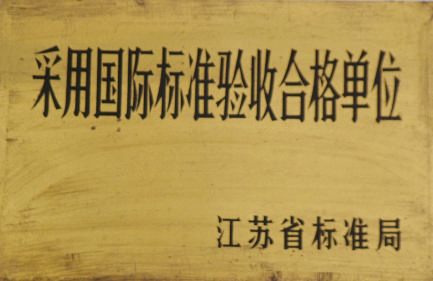 采用国际标准验收合格单位
江苏省标准局